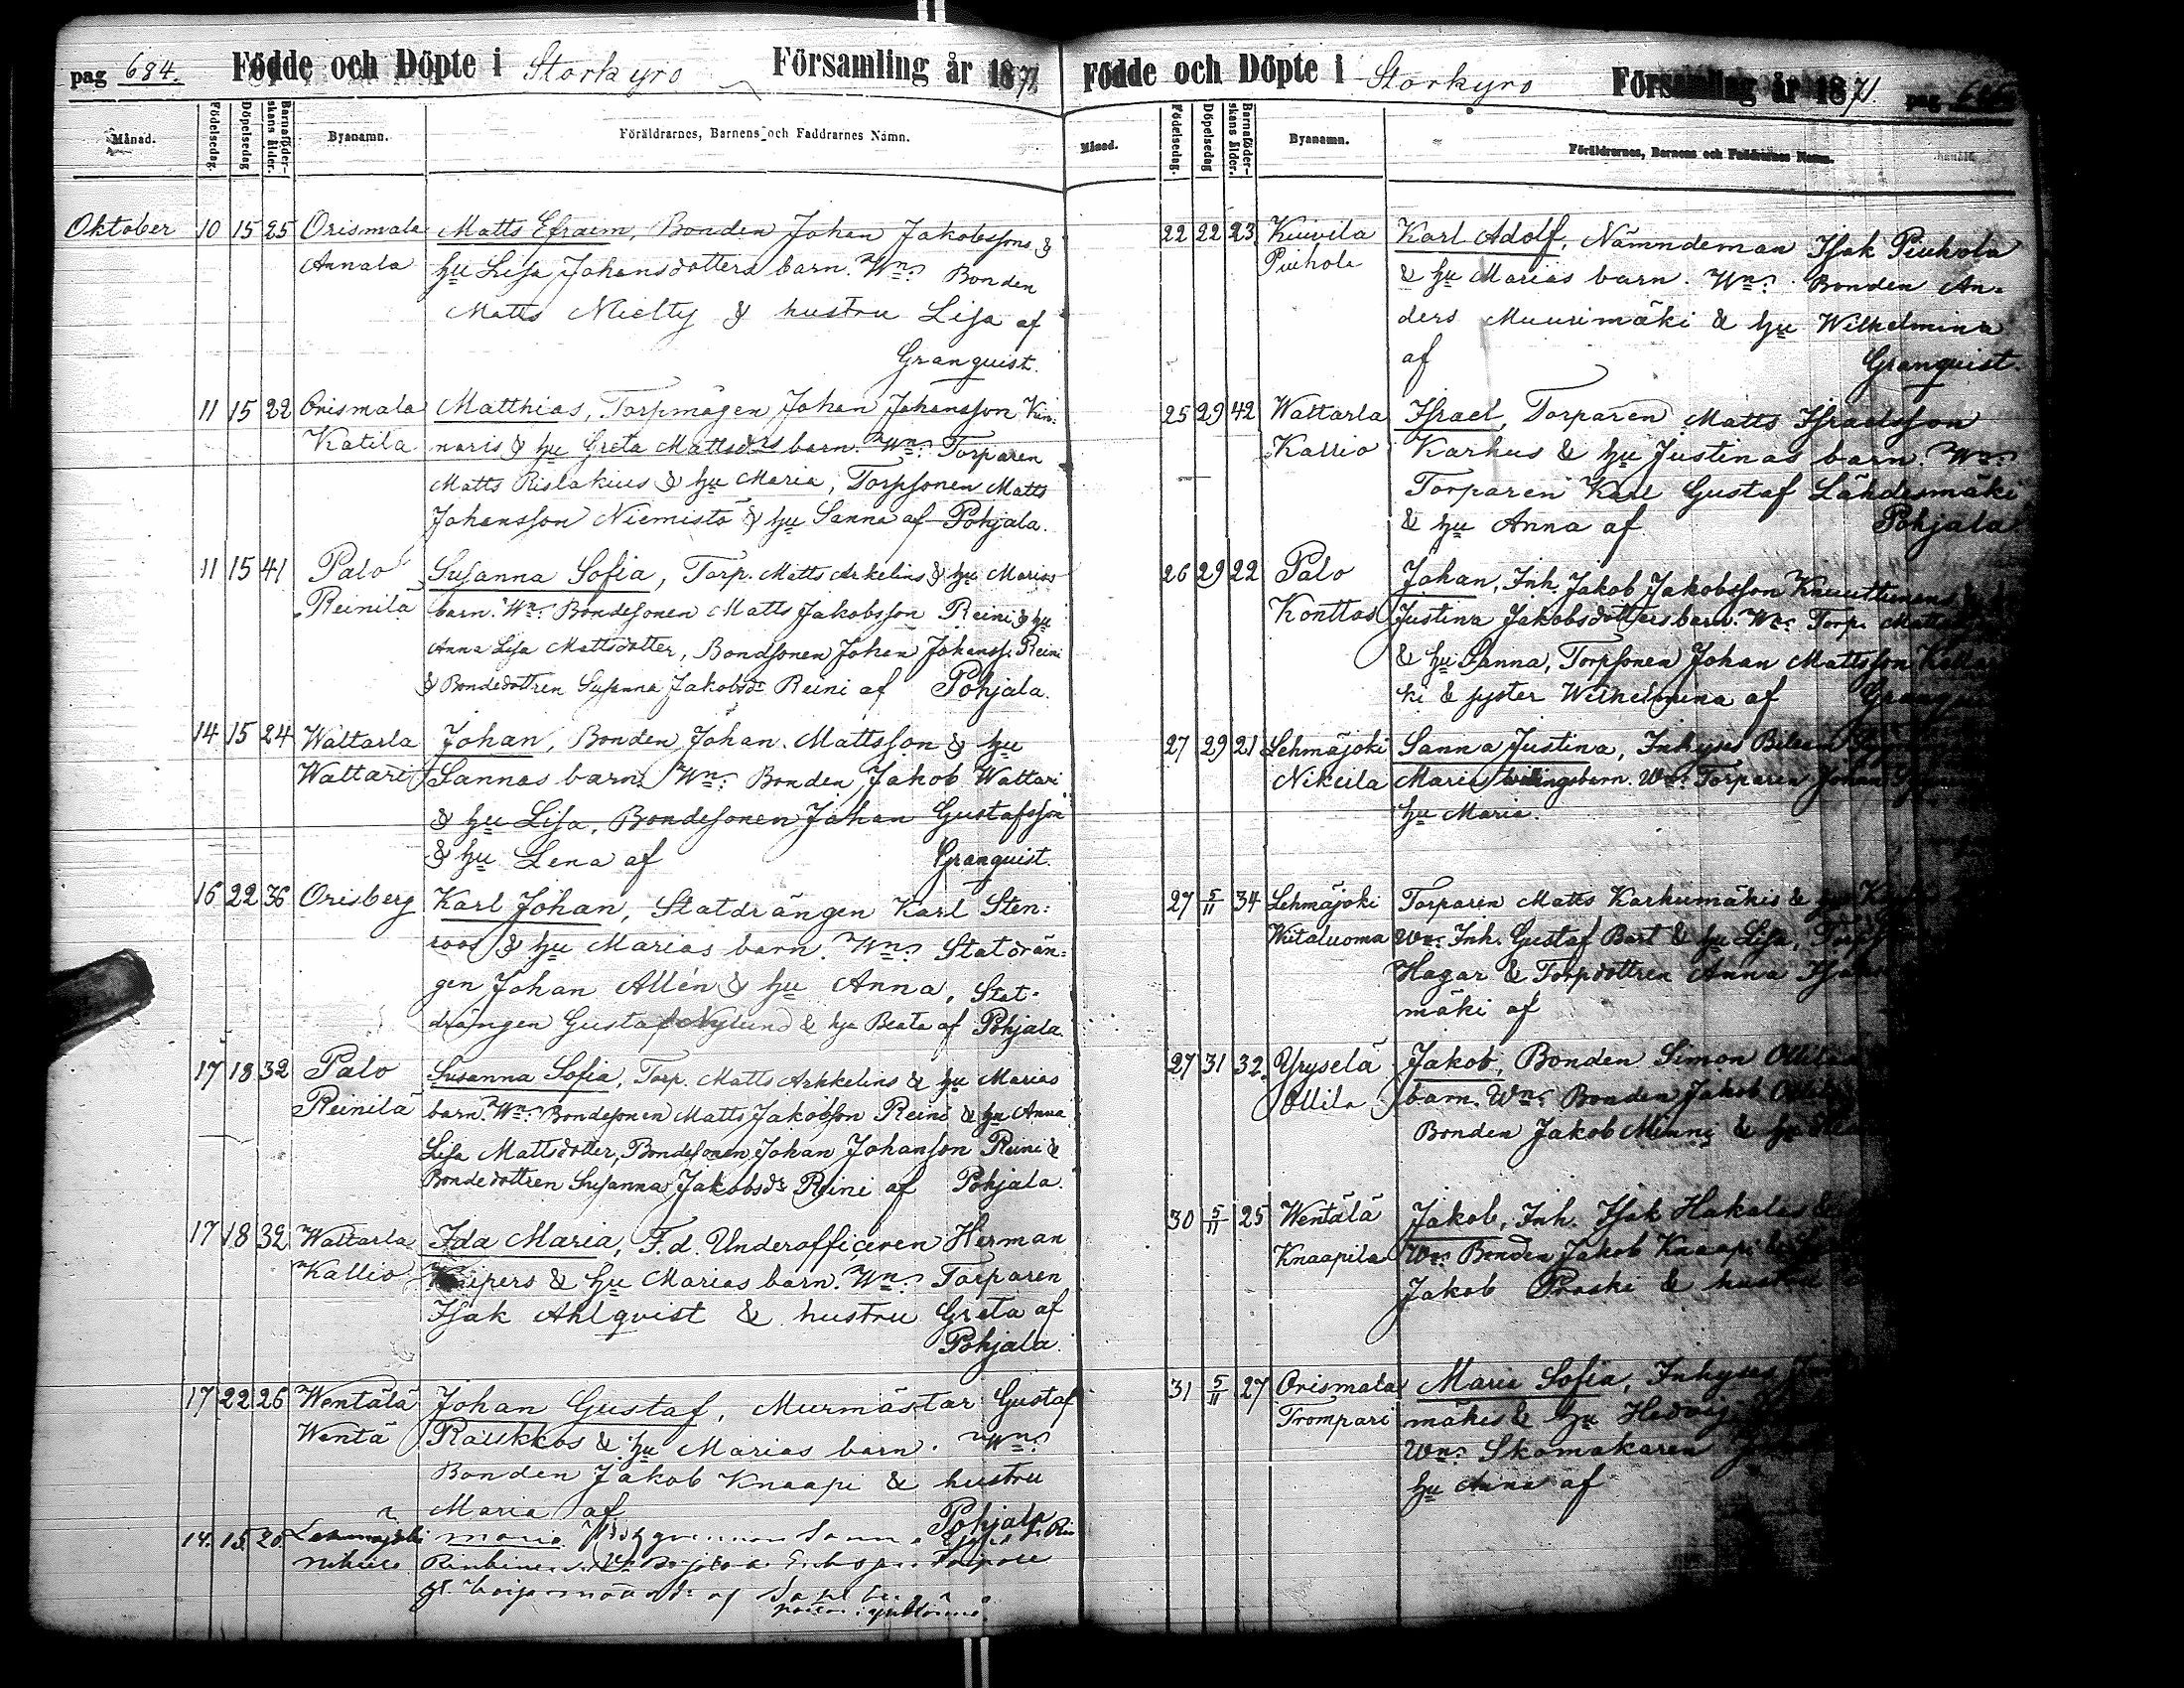 pag 684. Födde och Döpte i Storkyro Församling år 1871
Månad. Födelsedag. Döpelsedag Barnaföderskans ålder. Byanamn. Föräldrarnes, Barnens och Faddrarnes Namn.
Oktober 10 15 25 Orismala Matts Efraim, Bonden Johan Jakobssons &
Annala hu Lisa Johansdotters barn. Wn: Bonden
Matts Mielty & hustru Lisa af
Granquist.
11 15 22 Orismala Matthias, Torpmågen Johan Johansson Kin:
Katila naris & hu Greta Mattsdrs barn. Wn: Torparen
Matts Rislakius & hu Maria, Torpsonen Matts
Johansson Niemistö & hu Sanna af Pohjala.
11 15 41 Palo Susanna Sofia, Torp. Matts Arkelins & hu Marias
Reinilä barn. Wn: Bondesonen Matts Jakobsson Reini & hu
Anna Lisa Mattsdotter, Bondsonen Johan Johanss. Reini
& Bondedottren Susanna Jakobsdr Reini af Pohjala.
14 15 24 Waltarla Johan, Bonden Johan Mattsson & hu
Waltari Sannas barn. Wn: Bonden Jakob Waltari
& hu Lisa, Bondesonen Johan Gustafsson
& hu Lena af Granquist.
16 22 36 Orisberg Karl Johan, Statdrängen Karl Sten:
roos & hu Marias barn. Wn: Statdrän:
gen Johan Allén & hu Anna, Stat:
drängen Gustaf Nylund & hu Beata af Pohjala.
17 18 32 Palo Susanna Sofia, Torp. Matts Arkkelins & hu Marias
Reinilä barn. Wn: Bondesonen Matts Jakobsson Reini & hu Anna
Lisa Mattsdotter, Bondesonen Johan Johansson Reini &
Bondedottren Susanna Jakobsdr Reini af Pohjala.
17 18 32 Waltarla Ida Maria, F.d. Underofficeren Herman
Kallio Kuipers & hu Marias barn. Wn: Torparen
Isak Ahlqvist & hustru Greta af
Pohjala.
17 22 26 Wentälä Johan Gustaf, Murmästar Gustaf
Wentä Raukkos & hu Marias barn. Wn:
Bonden Jakob Knaapi & hustru
Maria af Pohjala
14. 15. 20. maria
af
Födde och Döpte i Storkyro Församling år 1871. pag
Månad. Födelsedag. Döpelsedag Barnaföderskans ålder. Byanamn. Föräldrarnes, Barnens och Faddrarnes Namn.
22 22 23 Kuivila Karl Adolf, Nämndeman Isak Piuhola
Piuhola & hu Marias barn. Wn: Bonden An-
ders Muurimäki & hu Wilhelmina
af Granquist.
25 29 42 Waltarla Israel, Torparen Matts Israelsson
Kallio Karhus & hu Justinas barn. Wn:
Torparen Karl Gustaf Lähdesmäki
& hu Anna af Pohjala
26 29 22 Palo Johan, Inh. Jakob Jakobsson Knuuttinens
Konttas Justina Jakobsdotters barn. Wn: Torp.
& hu Sanna, Torpsonen Johan Mattsson
ki & syster Wilhelmina af
27 29 21 Lehmäjoki Sanna Justina, Inhyses
Nikula Marias barn. Wn: Torparen Johan
hu Maria.
27 5/11 34 Lehmäjoki Torparen Matts Karhumäkis & hu
Wiitaluoma Wn: Inh. Gustaf Bast & hu Lisa,
Hagar & Torpdottren Anna
mäki af
27 31 32. Yryselä Jakob, Bonden Simon
Ollila barn. Wn: Bonden Jakob
Bonden Jakob Minni & hu
30 5/11 25 Wentälä Jakob, Inh. Isak Hakalas &
Knaapila Wn: Bonden Jakob Knaapi &
Jakob Proski & hustru
31 5/11 27 Orismala Maria Sofia, Inhyses
Trompari mäkis & hu Hedvig
Wn: Skomakaren
hu Anna af